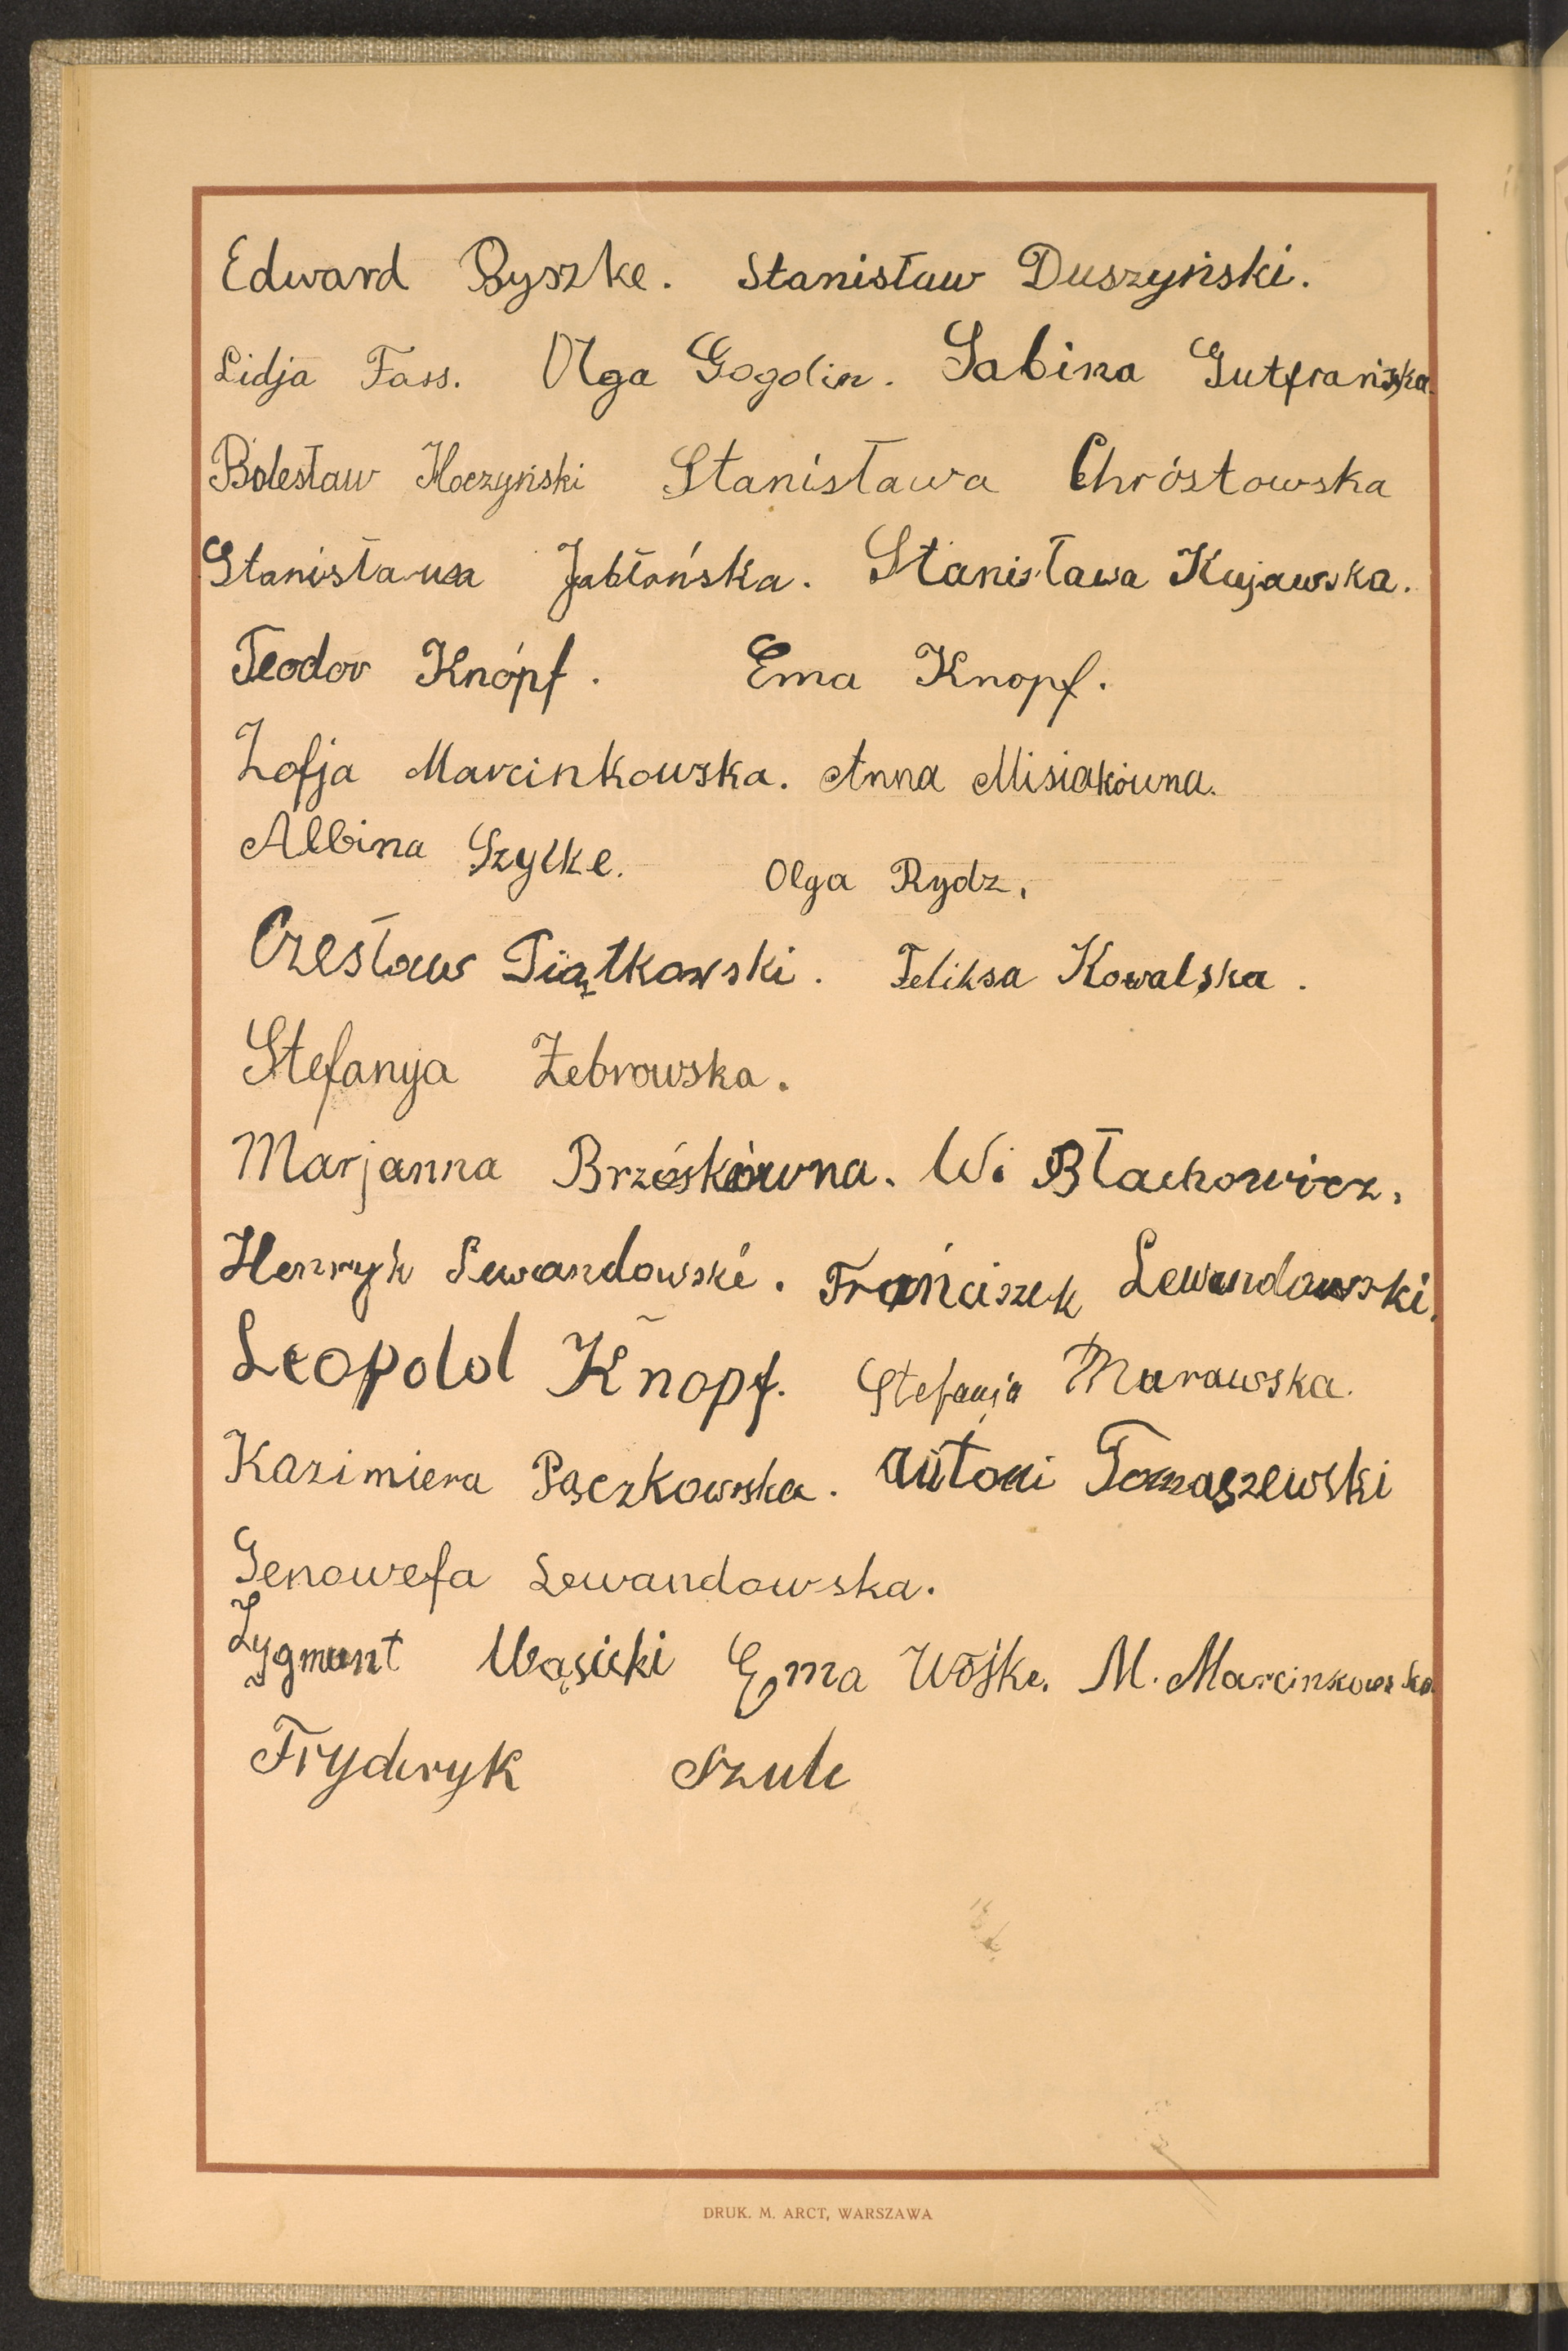 Edward Byszke. Stanisław Duszyński.
Lidja Fass. Olga Gogolin. Sabina Gutfrańska.
Bolesław Hoczyński Stanisława Chróstowska
Stanisława Jabłońska. Stanisława Kujawska.
Teodor Knopf. Ema Knopf.
Zofja Marcinkowska. Anna Misiakówna.
Albina Szylke. Olga Rydz.
Czesław Piątkowski. Feliksa Kowalska.
Stefanja Żebrowska.
Marjanna Brzóskówna. W. Błachowicz.
Henryk Lewandowski. Franciszek Lewandowski.
Leopold Knopf. Stefanja Murawska.
Kazimiera Pączkowska. Antoni Tomaszewski
Genowefa Lewandowska.
Zygmunt Wąsicki Ema Wojke. M. Marcinkowska.
Fryderyk Szulc
DRUK. M. ARCT, WARSZAWA